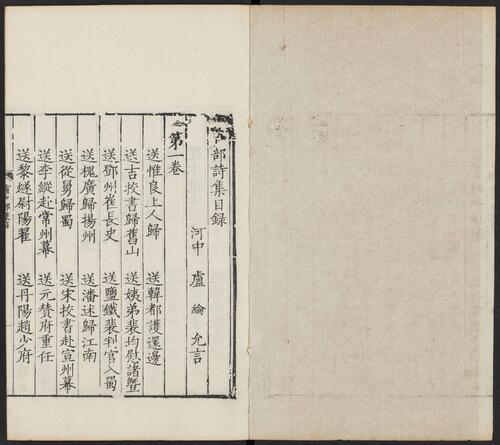 部詩集目錄
河中 盧綸 允言
第一卷
送惟良上人歸 送韓都護還邊
送吉校書歸舊山 送姨弟裴均慰諸暨
送鄧州崔長史 送鹽鐵裴判官入蜀
送槐廣歸揚州 送潘述歸江南
送從舅歸蜀 送宋校書赴宣州幕
送李縱赴常州幕 送元贊府重任
送黎燧尉陽翟 送丹陽趙少府